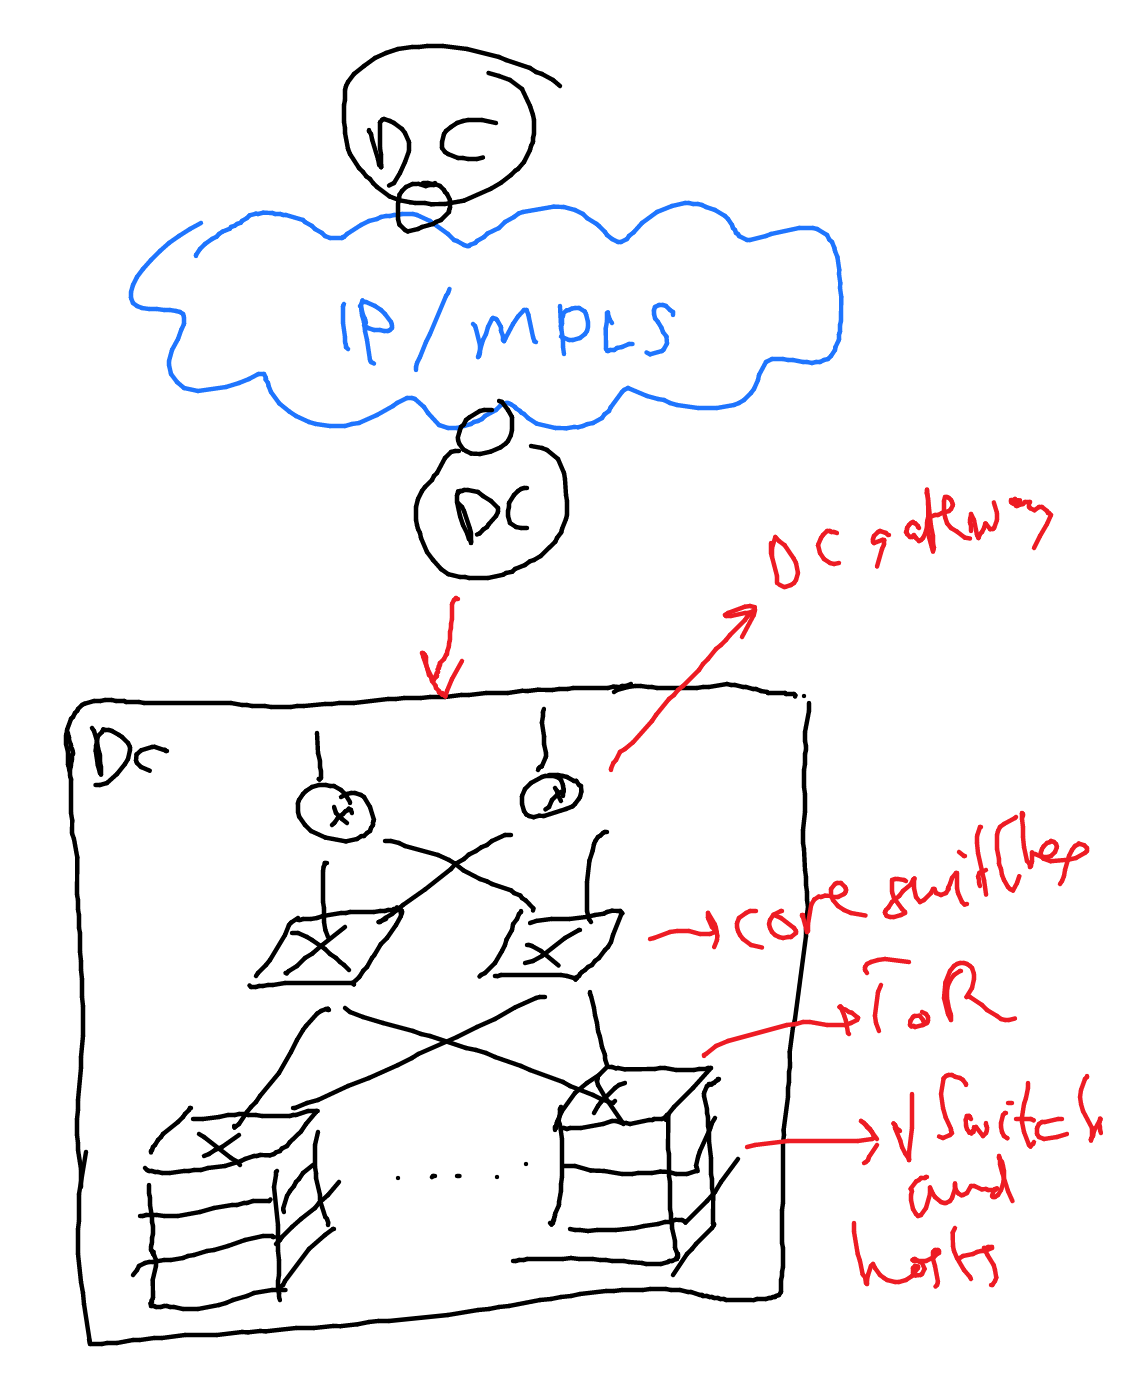 DC
IP/MPLS
DC
DC gateway
DC
core switches
ToR
vSwitch
and
hosts